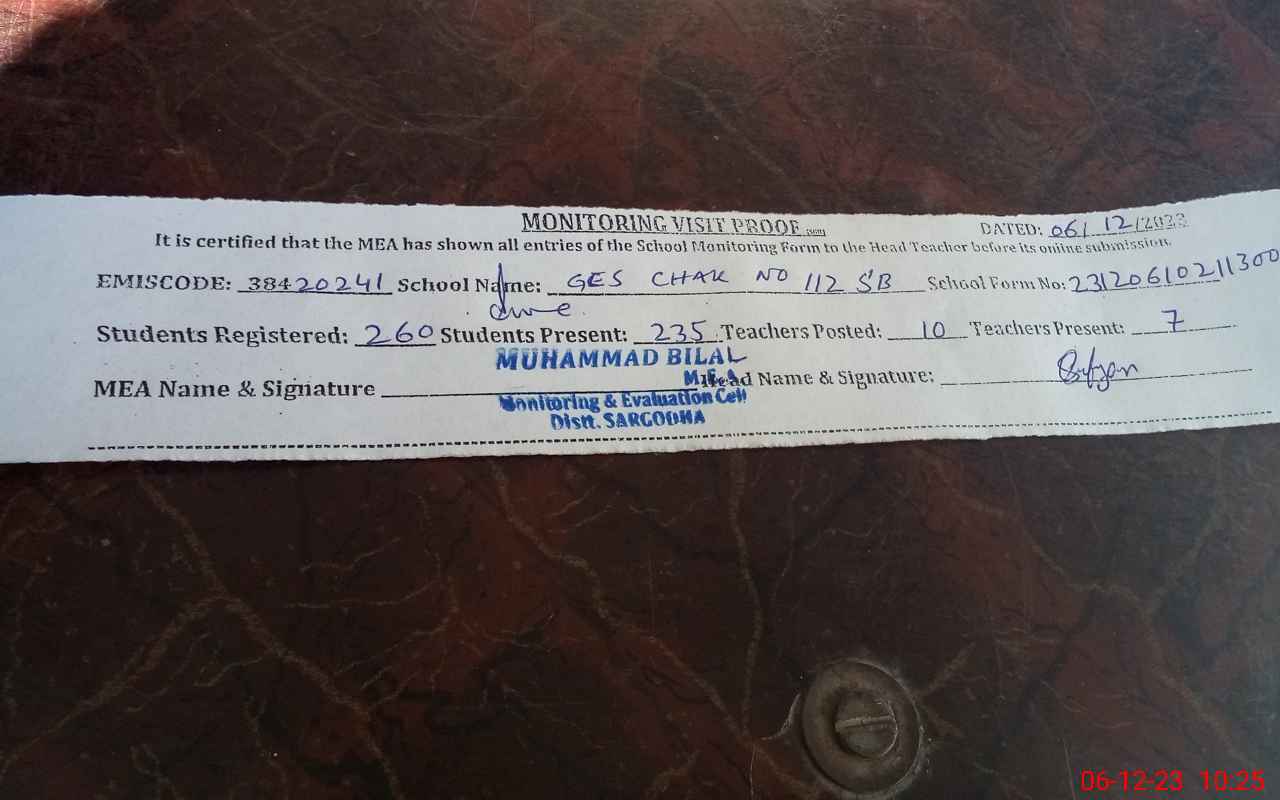 MONITORING VISIT PROOF DATED: 06/ 12/2023
It is certified that the MEA has shown all entries of the School Monitoring Form to the Head Teacher before its online submission.
EMISCODE: 38420241 School Name: GES CHAK NO 112 SB School Form No: 23120610211300
Students Registered: 260 Students Present: 235 Teachers Posted: 10 Teachers Present: 7
MUHAMMAD BILAL
MEA Name & Signature M.E.A Head Name & Signature:
Monitoring & Evaluation Cell
Distt. SARGODHA
06-12-23 10:25